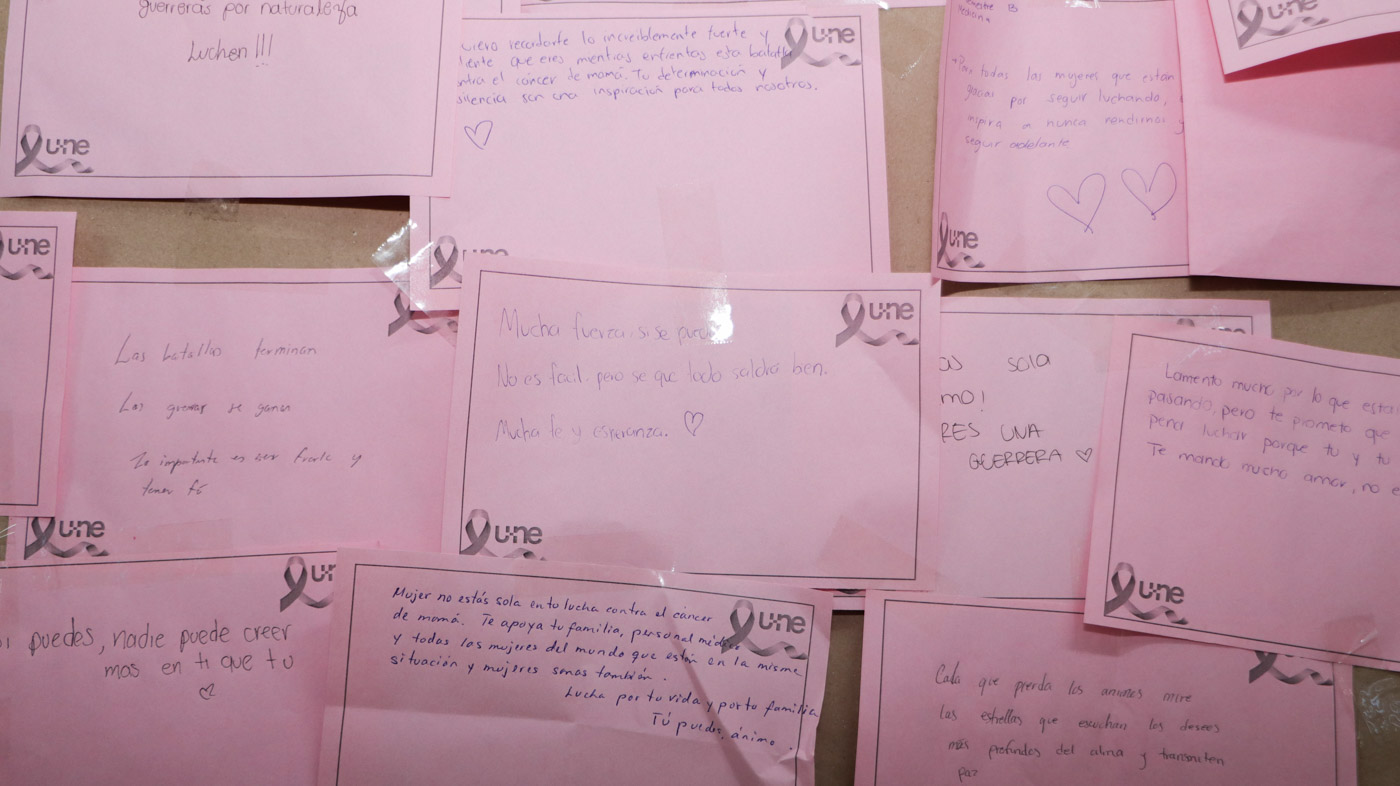 guerreras por naturaleza
Luchen!!!
une
une
recordarte lo increiblemente fuerte y
que eres mientras enfrentas esta batalla
el cáncer de mama. Tu determinación y
son una inspiración para todos nosotros.
B
todas las mujeres que estan
por seguir luchando,
inspira a nunca rendirnos y
seguir adelante
une
une
une
Las batallas terminan
Las guerras se ganan
Lo importante es ser fuerte y
tener fé
une
une
Mucha fuerza, si se
No es facil, pero se que todo saldrá bien.
Mucha fe y esperanza.
une
sola
UNA
GUERRERA
Lamento mucho por lo que
pasando, pero te prometo que
luchar porque tu y tu
Te mando mucho amor, no
une
puedes, nadie puede creer
mas en ti que tu
une
Mujer no estás sola en tu lucha contra el cáncer
de mamá. Te apoya tu familia, personal médico
y todas las mujeres del mundo que están en la misma
situación y mujeres sanas también.
Lucha por tu vida y por tu familia
Tú puedes, ánimo.
Cada que pierda los animos mire
las estrellas que escuchan los deseos
más profundos del alma y transmiten
paz